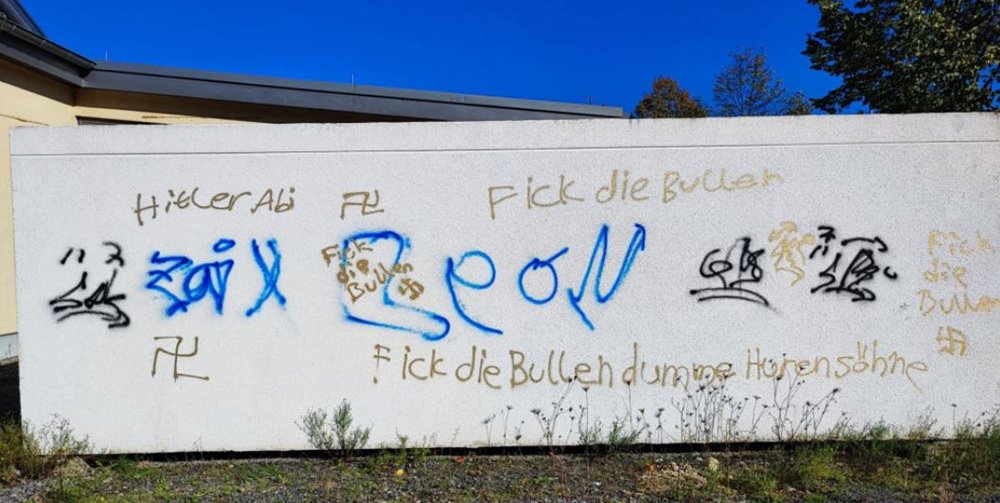 Hitler Abi
Fick die Bullen
Fick
die
Bullen
Leon
Fick
die
Bullen
Fick die Bullen dumme Hurensöhne